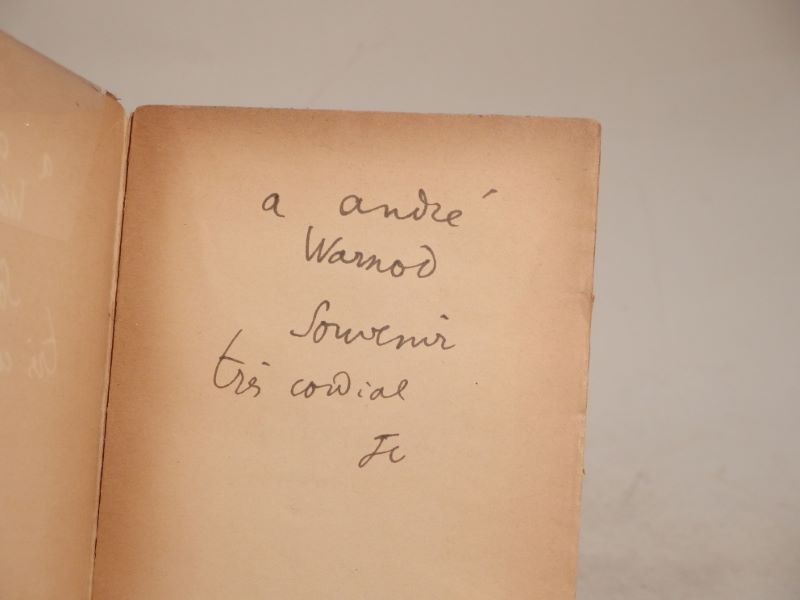 a andré
Warnod
Souvenir
très cordial
Jc